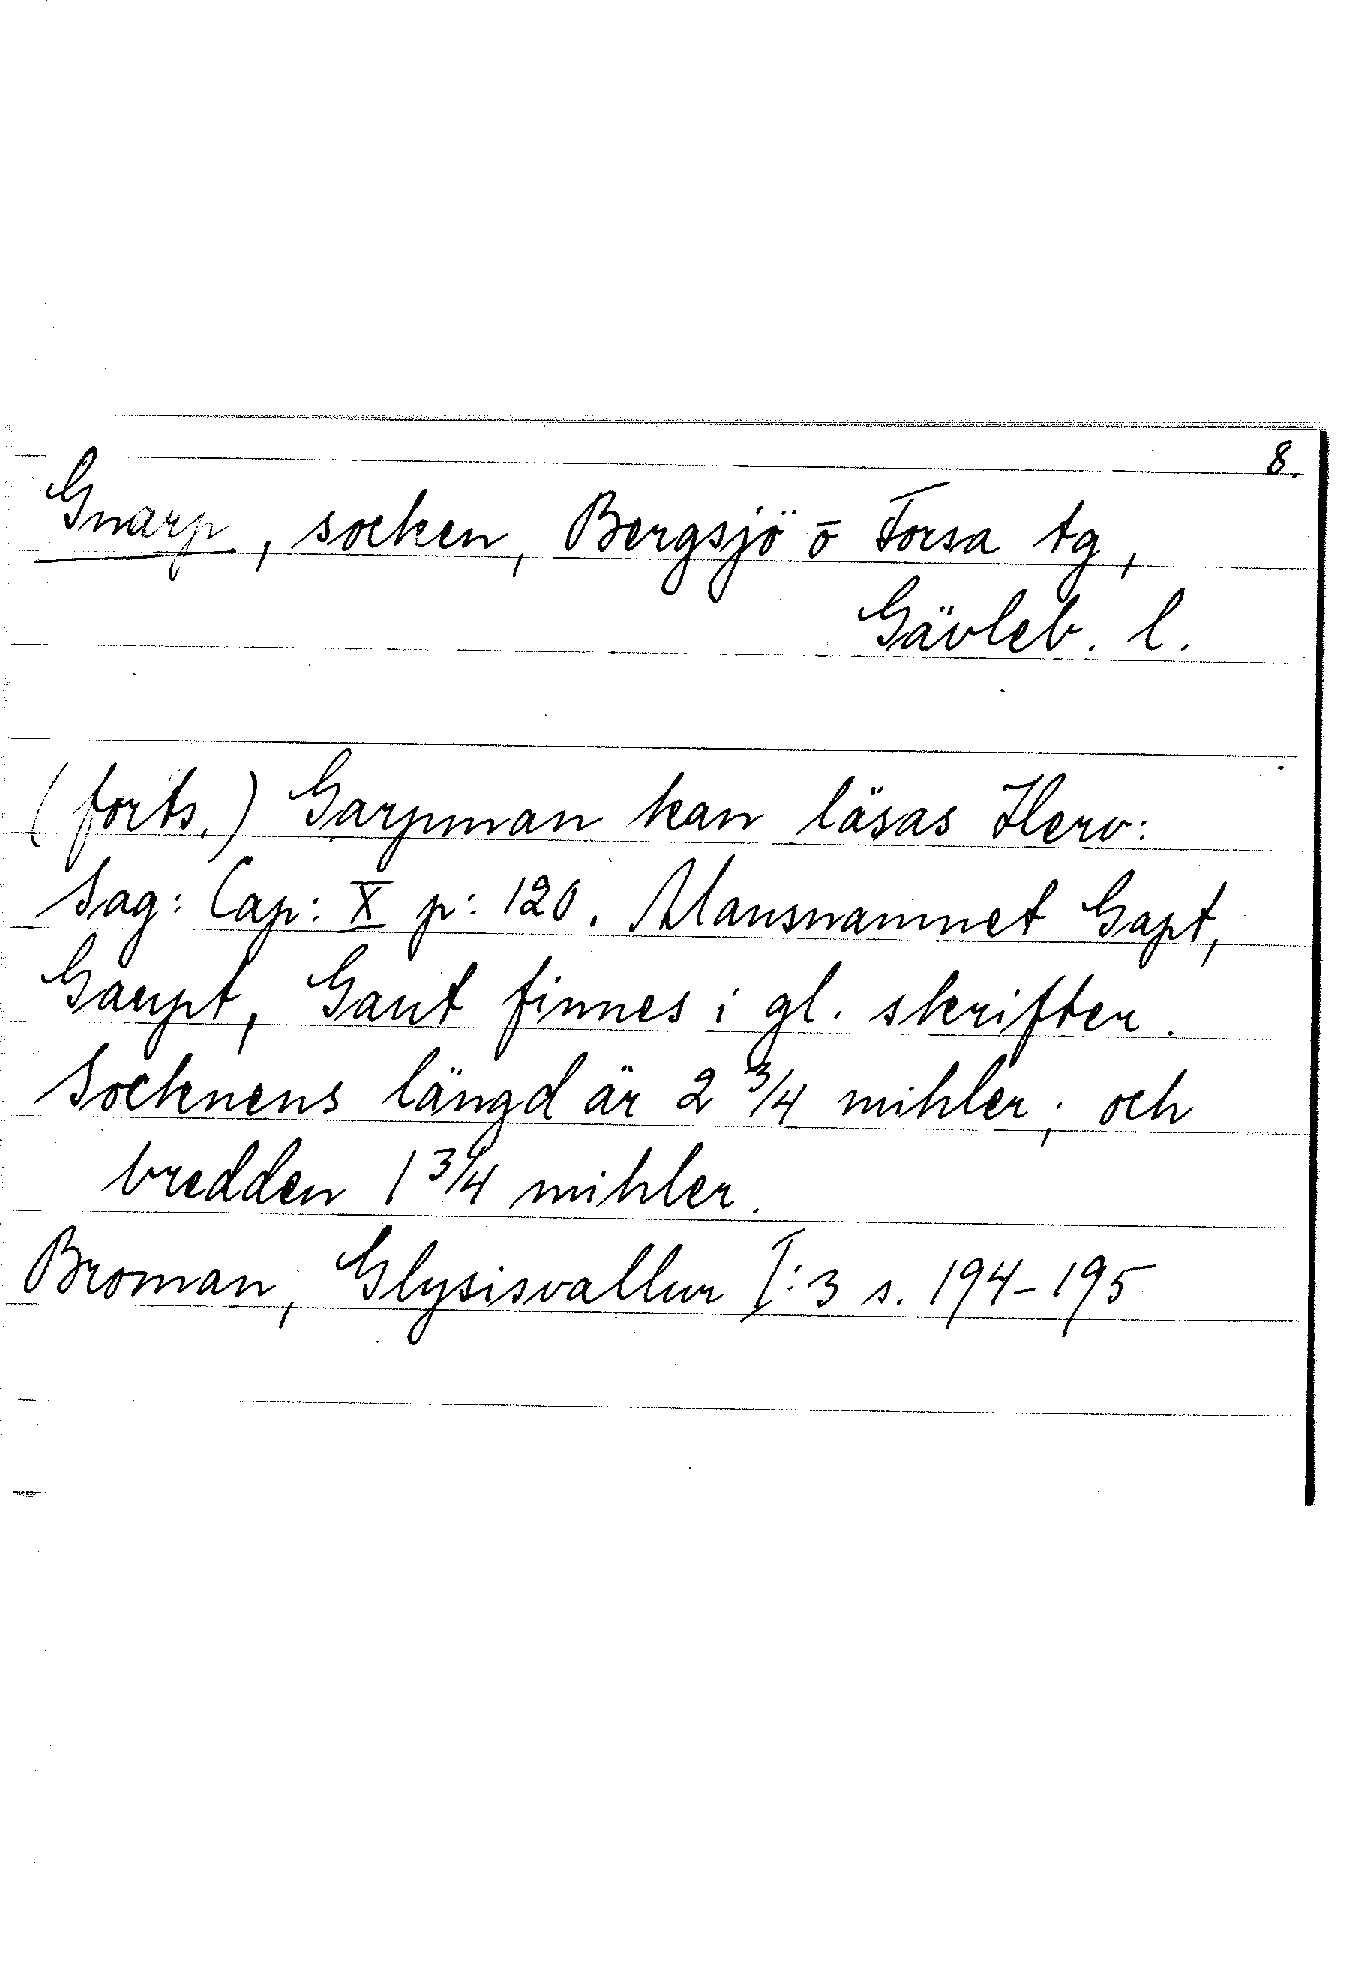 8.
Gnarp, socken, Bergsjö o Forsa tg,
Gävleb. l.
(forts.) Garpman kan läsas Herv:
Sag: Cap: X p: 120. Mansnamnet Gapt,
Gaupt, Gaut finnes i gl. skrifter.
Socknens längd är 2 3/4 mihler; och
bredden 1 3/4 mihler.
Broman, Glysisvallur I:3 s. 194-195